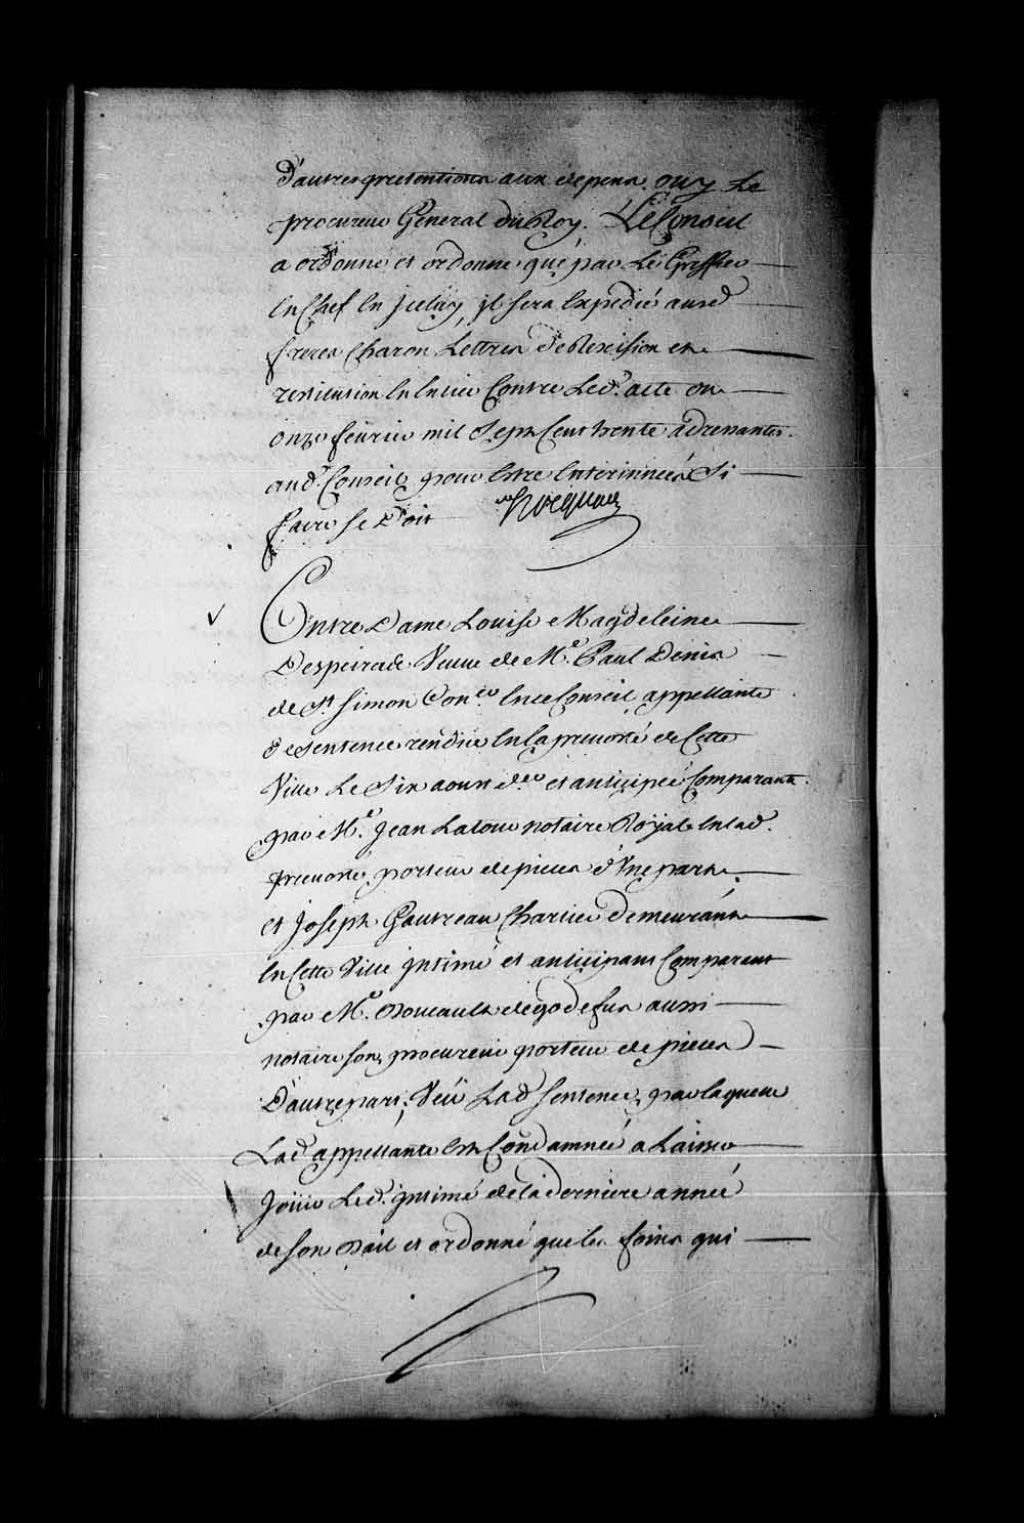 d'autres pretentions aux depens. ouy Le
procureur General du Roy. Le Conseil
a ordonné et ordonne que par Le Greffier
En Chef En Jceluy, jl sera Expedié ausd
freres Charon Lettres de Rescision et
restitution En Entier Contre Led. acte du
onze feurier mil Sept Cent trente adressantes
aud. Conseil, pour Estre Enterinnées Si
faire se Doit Hocquart
Entre Dame Louise Magdeleine
Despeirade Veuue de Me. Paul Denis
de St. Simon Coner. En ce Conseil appellante
de sentence rendüe En la preuosté de Cette
Ville Le Six aoust der. et anticipée Comparante
par Me. Jean Latour notaire Royal En lad.
preuosté porteur de pieces d'Vne part
et Joseph Gautreau Chartier demeurant
En Cette Ville jntimé et anticipant Comparent
par Me. Boucault de godefus aussi
notaire son procureur porteur de pieces
D'autre part; Veü Lad sentence, par laquelle
Lad. appellante Est Condamnée a Laisser
Joüir Led. jntimé de la derniere année
de son Bail et ordonné que les foins qui